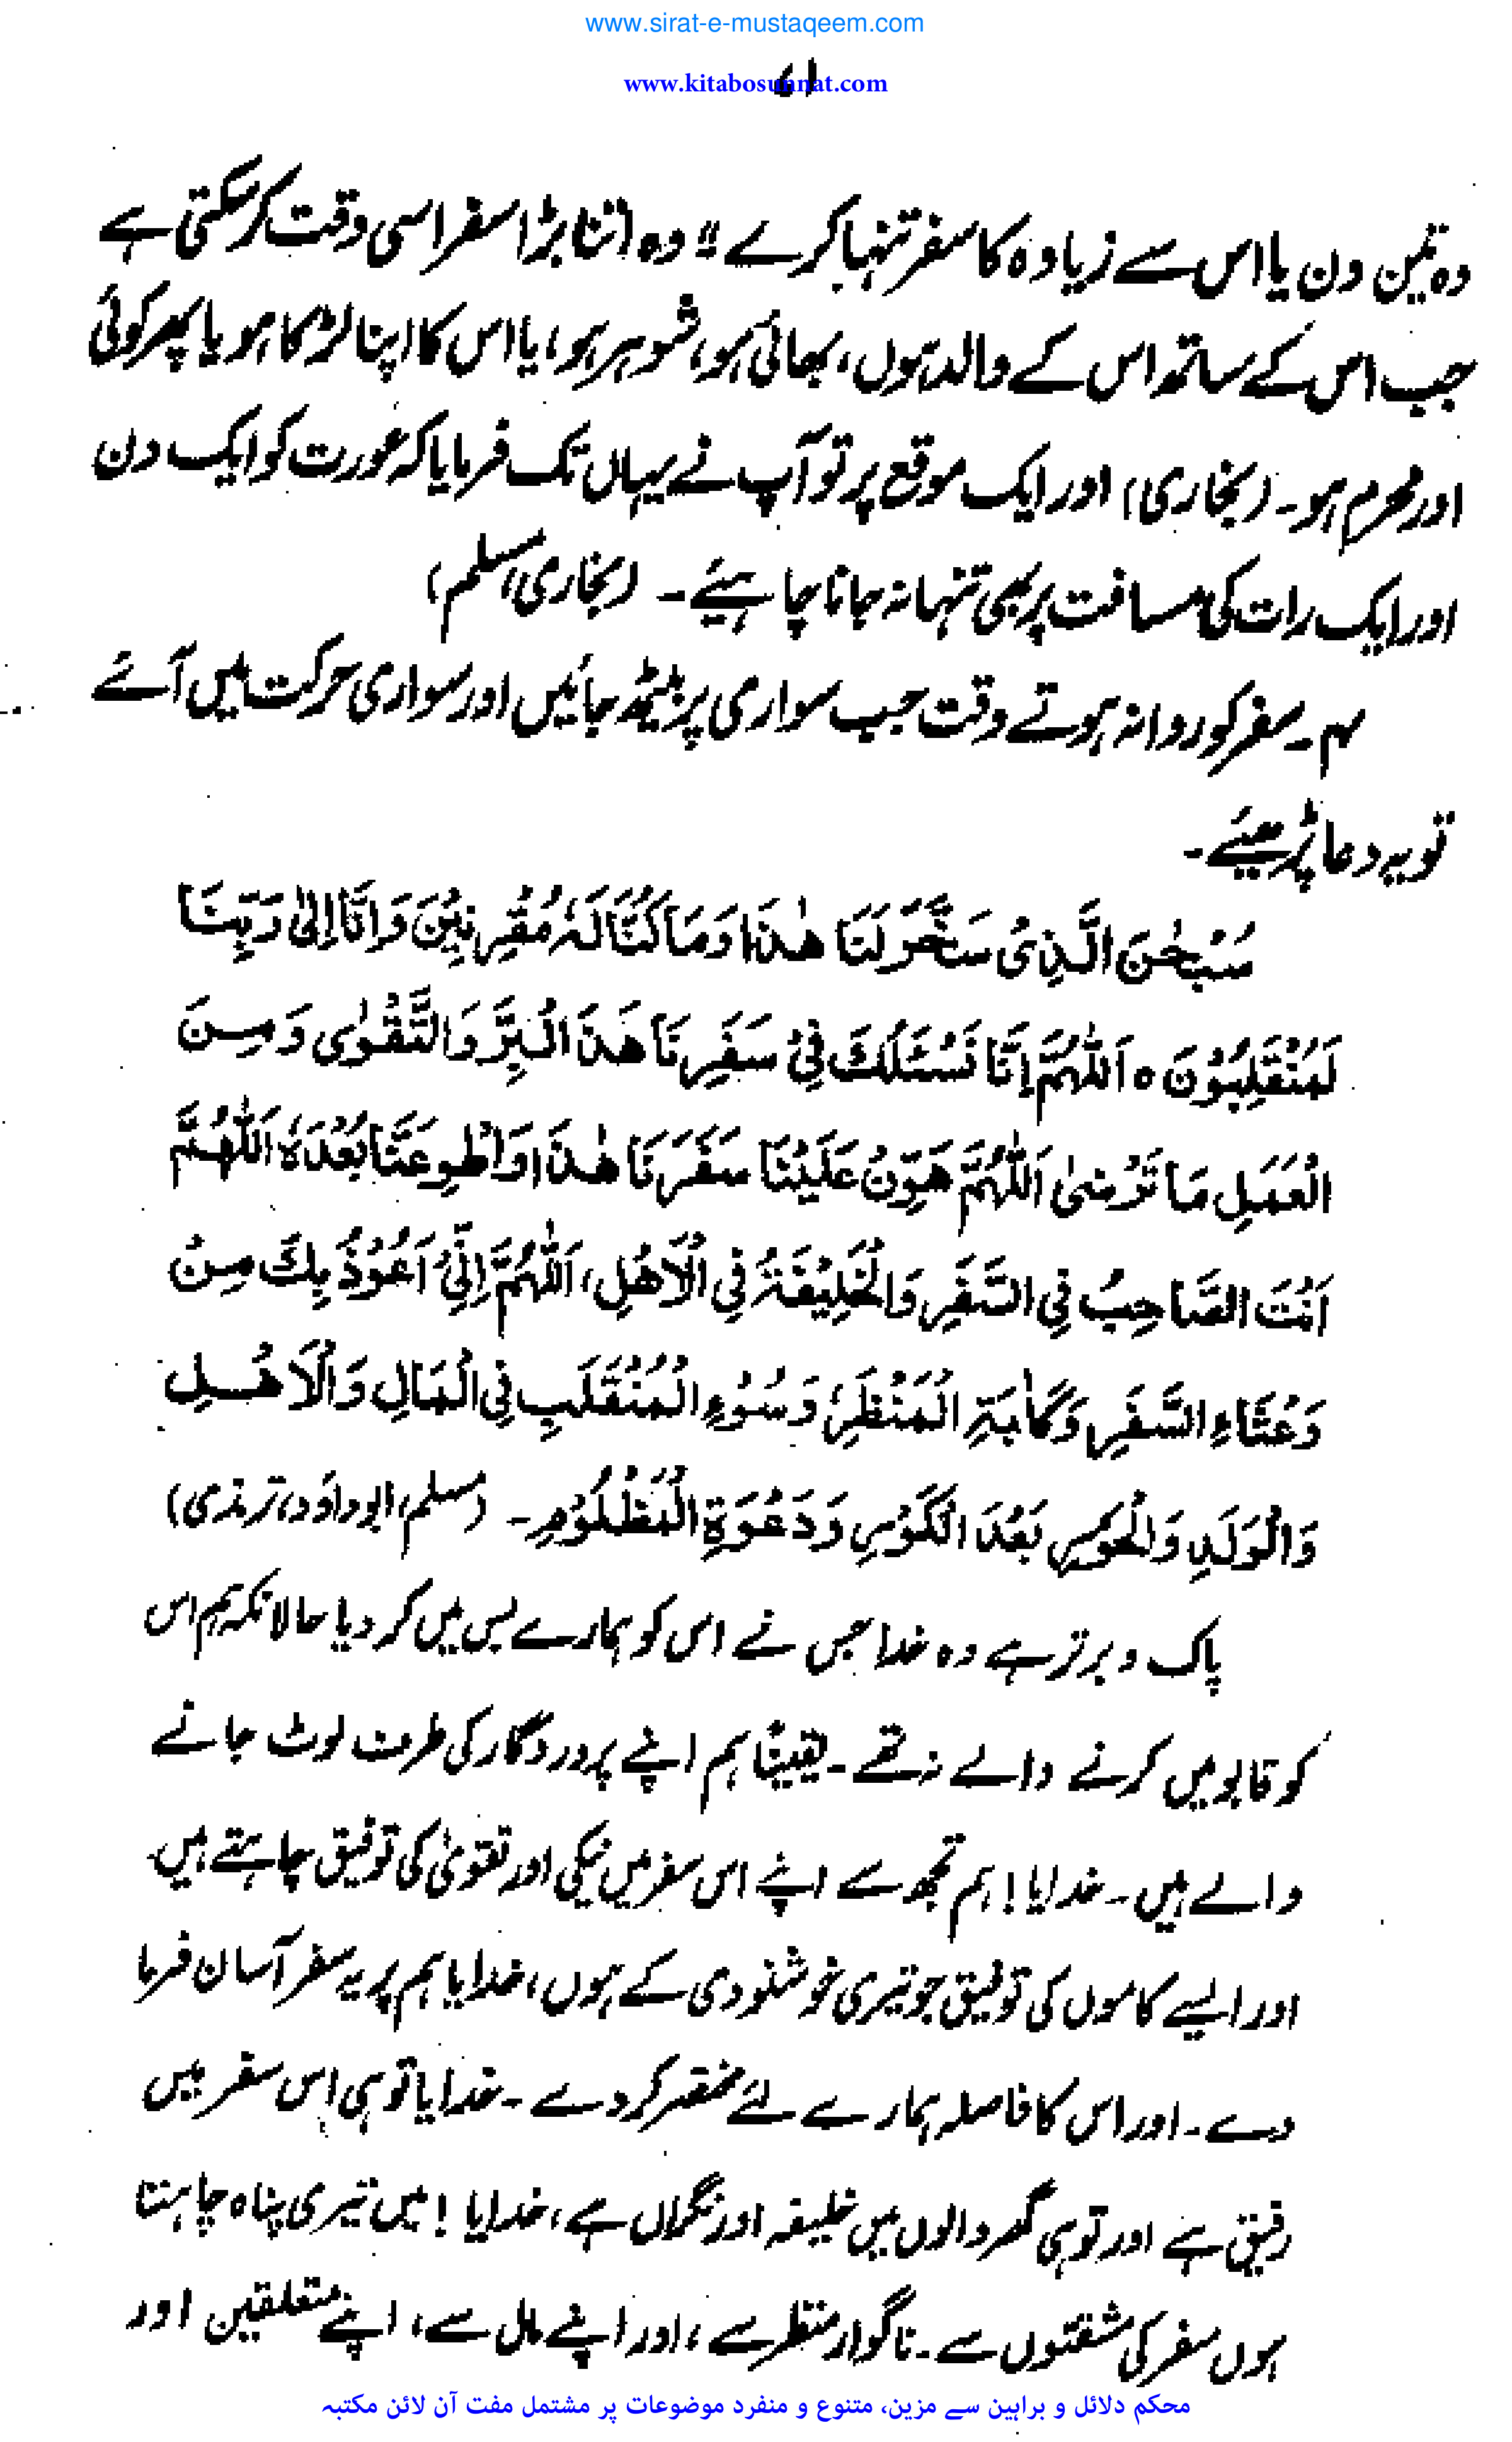 www.sirat-e-mustaqeem.com
۷۱
www.kitabosunnat.com
وہ تین دن یا اس سے زیادہ کا سفر تنہا کرے"۔ وہ اتنا بڑا سفر اسی وقت کر سکتی ہے
جب اس کے ساتھ اس کے والد ہوں، بھائی ہو، شوہر ہو، یا اس کا اپنا لڑکا ہو یا پھر کوئی
اور محرم ہو۔ (بخاری) اور ایک موقع پر تو آپ نے یہاں تک فرمایا کہ عورت کو ایک دن
اور ایک رات کی مسافت پر بھی تنہا نہ جانا چاہیئے۔ (بخاری، مسلم)
۴۔ سفر کو روانہ ہوتے وقت جب سواری پر بیٹھ جائیں اور سواری حرکت میں آئے
تو یہ دعا پڑھیئے۔
سُبْحٰنَ الَّذِیْ سَخَّرَ لَنَا هٰذَا وَمَا کُنَّا لَهٗ مُقْرِنِیْنَ وَاِنَّا اِلٰی رَبِّنَا
لَمُنْقَلِبُوْنَ ہ اَللّٰهُمَّ اِنَّا نَسْئَلُكَ فِیْ سَفَرِنَا هٰذَا الْبِرَّ وَالتَّقْوٰی وَمِنَ
الْعَمَلِ مَا تَرْضٰی اَللّٰهُمَّ هَوِّنْ عَلَیْنَا سَفَرَنَا هٰذَا وَاطْوِ عَنَّا بُعْدَهٗ اَللّٰهُمَّ
اَنْتَ الصَّاحِبُ فِی السَّفَرِ وَالْخَلِیْفَةُ فِی الْاَهْلِ، اَللّٰهُمَّ اِنِّیْ اَعُوْذُ بِكَ مِنْ
وَعْثَاءِ السَّفَرِ وَکَاٰبَةِ الْمَنْظَرِ، وَسُوْءِ الْمُنْقَلَبِ فِی الْمَالِ وَالْاَهْلِ
وَالْوَلَدِ وَالْحَوْرِ بَعْدَ الْکَوْرِ وَدَعْوَةِ الْمَظْلُوْمِ۔ (مسلم، ابوداؤد، ترمذی)
پاک و برتر ہے وہ خدا جس نے اس کو ہمارے بس میں کر دیا حالانکہ ہم اس
کو قابو میں کرنے والے نہ تھے۔ یقیناً ہم اپنے پروردگار کی طرف لوٹ جانے
والے ہیں۔ خدایا! ہم تجھ سے اپنے اس سفر میں نیکی اور تقویٰ کی توفیق چاہتے ہیں
اور ایسے کاموں کی توفیق جو تیری خوشنودی کے ہوں، خدایا ہم پر یہ سفر آسان فرما
دے۔ اور اس کا فاصلہ ہمارے لئے مختصر کر دے۔ خدایا تو ہی اس سفر میں
رفیق ہے اور تو ہی گھر والوں میں خلیفہ اور نگراں ہے، خدایا! میں تیری پناہ چاہتا
ہوں سفر کی مشقتوں سے۔ ناگوار منظر سے، اور اپنے مال سے، اپنے متعلقین اور
محکم دلائل و براہین سے مزین، متنوع و منفرد موضوعات پر مشتمل مفت آن لائن مکتبہ